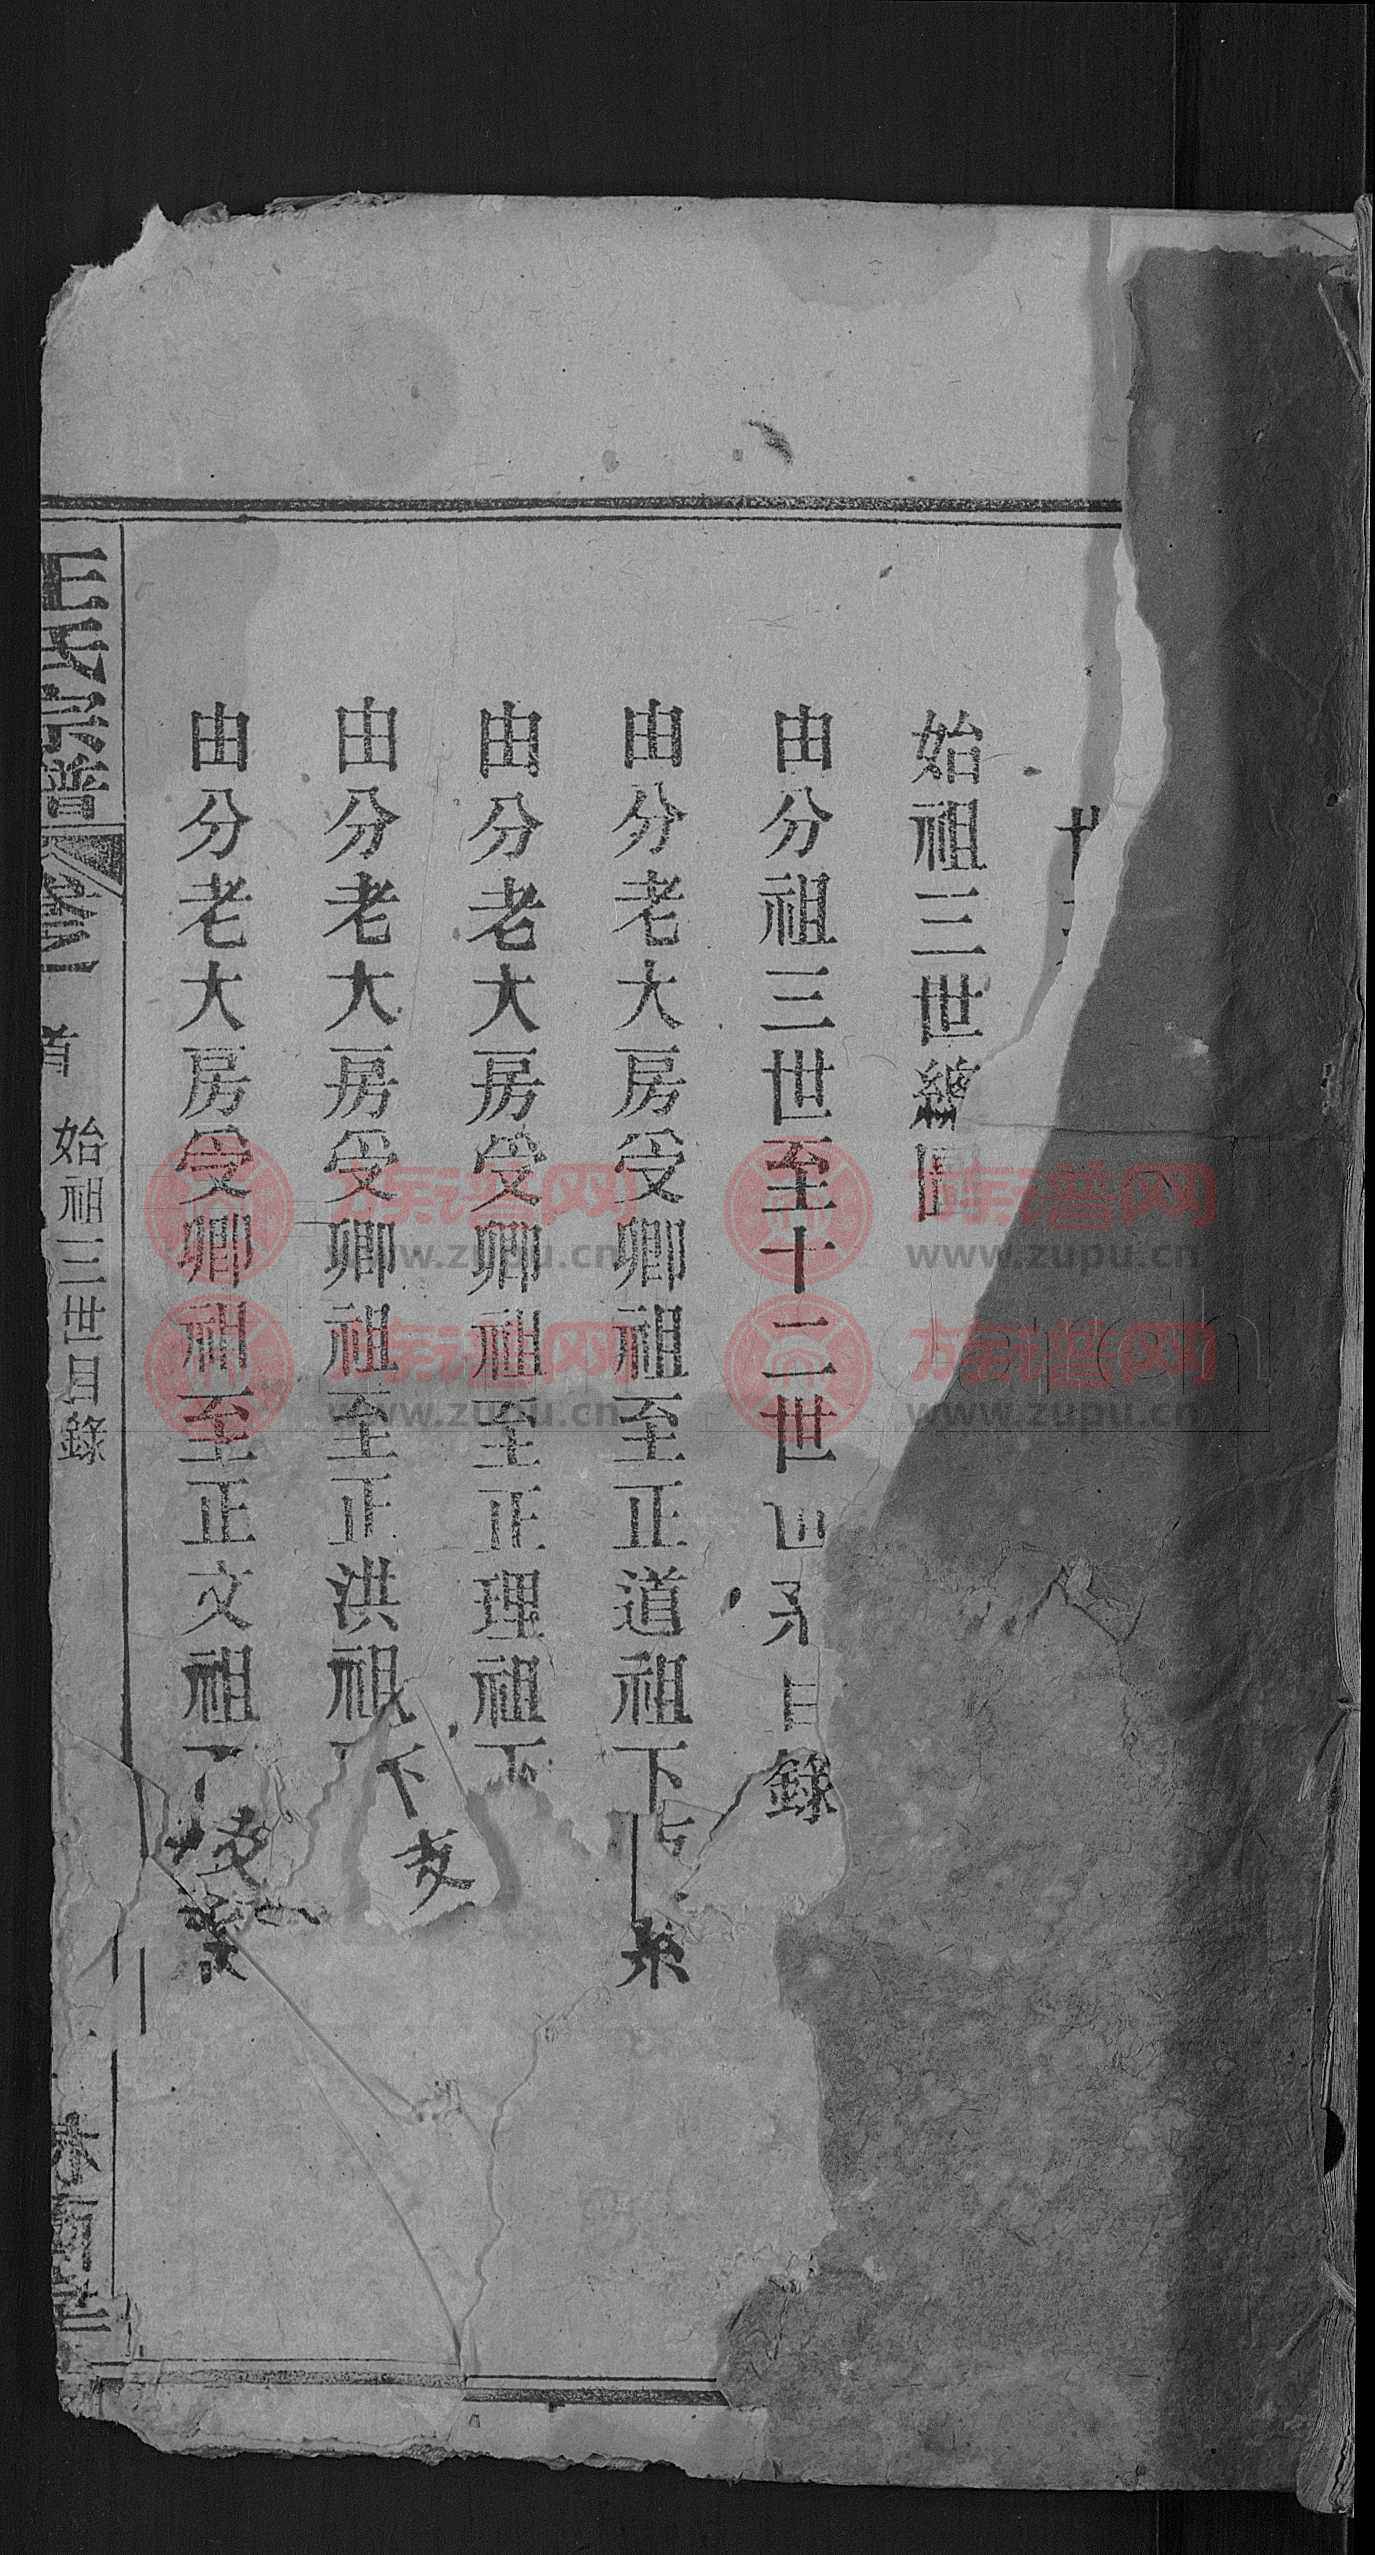 始祖三世總圖
由分祖三世至十二世世系目錄
由分老大房受卿祖至正道祖下支系
由分老大房受卿祖至正理祖下
由分老大房受卿祖至正洪祖下支
由分老大房受卿祖至正文祖下支系
王氏宗譜 卷首 始祖三世目錄
族譜网 www.zupu.cn
族譜网 www.zupu.cn
族譜网 www.zupu.cn
族譜网 www.zupu.cn